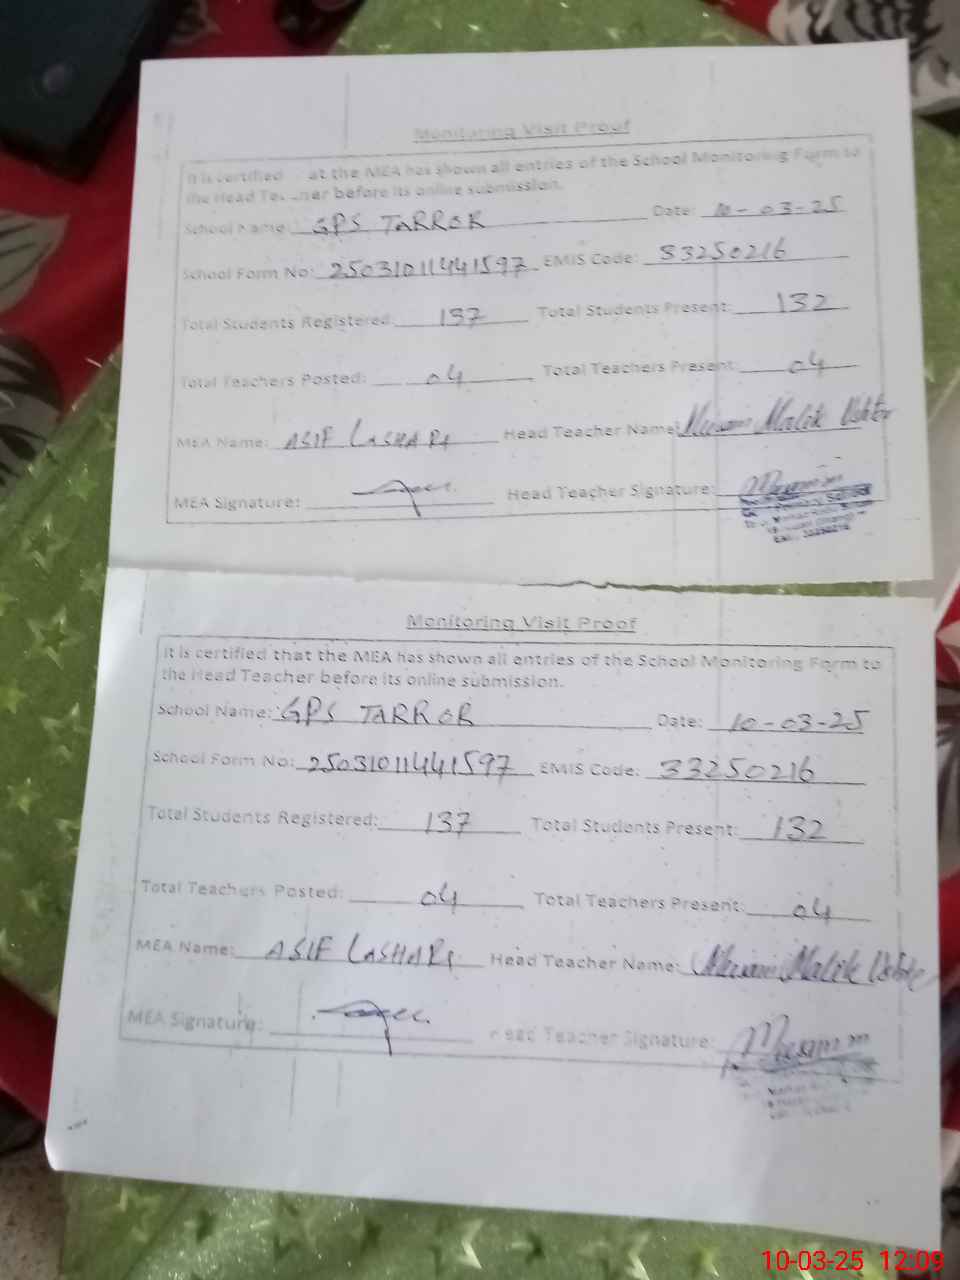 Monitoring Visit Proof
It is certified at the MEA has shown all entries of the School Monitoring Form to
the Head Teacher before its online submission.
School Name: GPS TARROR Date: 10-03-25
School Form No: 25031011441597 EMIS Code: 33250216
Total Students Registered: 137 Total Students Present: 132
Total Teachers Posted: 04 Total Teachers Present: 04
MEA Name: ASIF LASHARI Head Teacher Name: Malik
MEA Signature: Head Teacher Signature:
Monitoring Visit Proof
It is certified that the MEA has shown all entries of the School Monitoring Form to
the Head Teacher before its online submission.
School Name: GPS TARROR Date: 10-03-25
School Form No: 25031011441597 EMIS Code: 33250216
Total Students Registered: 137 Total Students Present: 132
Total Teachers Posted: 04 Total Teachers Present: 04
MEA Name: ASIF LASHARI Head Teacher Name: Malik
MEA Signature: Head Teacher Signature:
10-03-25 12:09